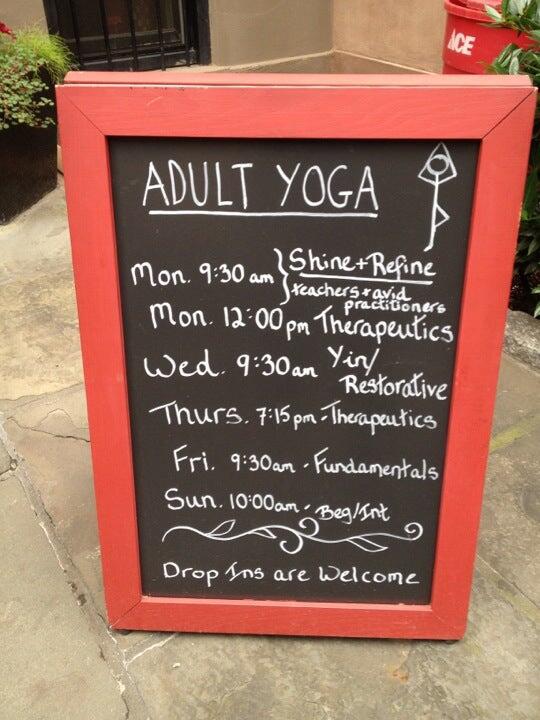 ACE
ADULT YOGA
Mon. 9:30 am } Shine + Refine
teachers + avid
practitioners
Mon. 12:00 pm Therapeutics
Wed. 9:30am Yin/
Restorative
Thurs. 7:15 pm - Therapeutics
Fri. 9:30am - Fundamentals
Sun. 10:00am - Beg/Int
Drop Ins are Welcome